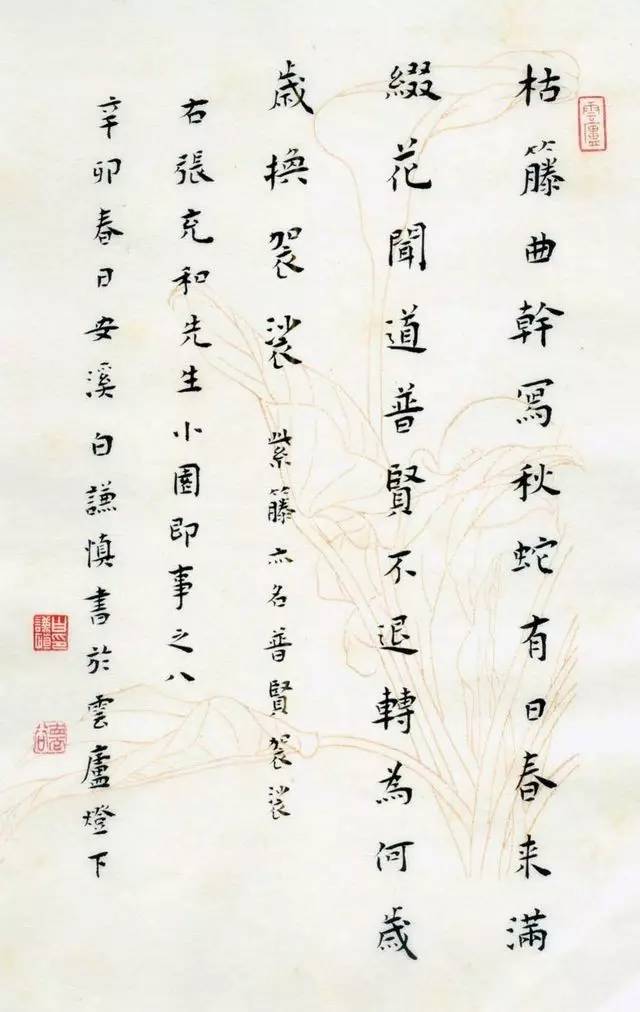 枯籐曲幹寫秋蛇有日春来滿
綴花聞道普賢不退轉為何歲
歲換袈裟
紫籐亦名普賢袈裟
右張充和先生小園即事之八
辛卯春日安溪白謙慎書於雲廬燈下
雲廬
白謙慎